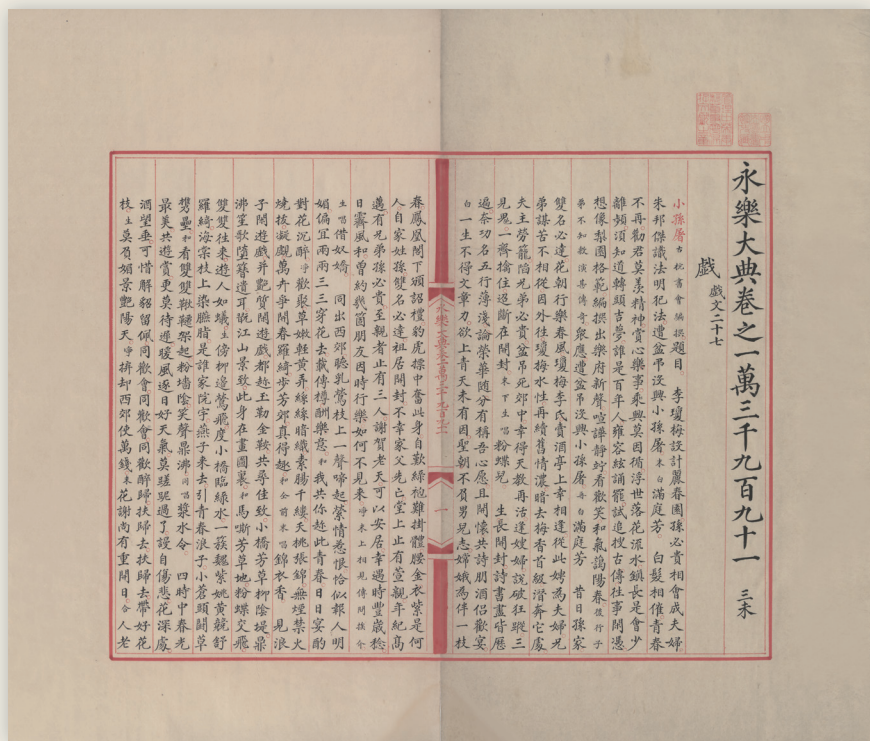 永樂大典卷之一萬三千九百九十一　三末
戲　戲文二十七
小孫屠　古杭書會編撰　題目　李瓊梅設計麗春園孫必貴相會成夫婦
朱邦傑識法明犯法遭盆吊沒興小孫屠　末白　滿庭芳　白髮相催青春
不再勸君莫羨精神賞心樂事乘興莫因循浮世落花流水鎮長是會少
離頻須知道轉頭吉夢誰是百年人雍容絃誦罷試追搜古傳往事閒憑
想像梨園格範編撰出樂府新聲喧譁靜竚看歡笑和氣靄陽春　後行子
弟不知敷演甚傳奇衆應遭盆吊沒興小孫屠　再白　滿庭芳　昔日孫家
雙名必達花朝行樂春風瓊梅李氏賣酒亭上幸相逢從此娉為夫婦兄
弟謀苦不相從因外往瓊梅水性再續舊情濃暗去梅香首級潛奔它處
夫主勞籠陷兄弟必貴盆吊死郊中幸得天教再活逢嫂婦說破狂蹤三
見鬼一齊擒住迢斷在開封　末下　生唱　粉蝶兒　生長開封詩書盡皆歷
遍奈功名五行薄淺論榮華隨分有稱吾心愿且開懷共詩朋酒侶歡宴
白　一生不得文章力欲上青天未有因聖朝不負男兒志嫦娥為伴一枝
春鳳凰閣下頒詔禮豹虎標中奮此身自歎綠袍難掛體腰金衣紫是何
人自家姓孫雙名必達祖居開封不幸家父先亡堂上止有萱親年紀高
邁有兄弟孫必貴至親者止有三人謝賀老天可以安居幸遇時豐歲稔
日霽風和曾約幾箇朋友因時行樂如何不見來　淨末上相見傳問撞介
生唱　借奴嬌　同出西郊聽乳鶯枝上一聲啼起縈情惹恨恰似報人明
媚偏宜兩兩三三穿花去載傳樽酬樂意　和　我共你趁此青春日日宴酌
對花沉醉　淨　歡聚草嫩輕黃弄絲絲暗織素腸千縷夭桃張錦無煙禁火
燒拔凝覷萬卉爭開春羅綺步芳郊真得趣　和公前　末唱　錦衣香　見浪
子閒遊戲并艷質閒遊戲都趁玉勒金鞍共尋佳致小橋芳草柳陰堤鼎
沸笙歌墮簪遺珥翫江山景致此身在畫圖裏　和　馬嘶芳草地粉蝶交飛
雙雙往來遊人如蟻　生　傍柳邊鶯飛度小橋臨綠水一簇魏紫姚黃競舒
羅綺海棠枝上染臙脂是誰家院宇燕子來去引青春浪子小蒼頭鬪草
攜壘　和　看雙雙鞦韆架起粉墻陰笑聲鼎沸　同唱　漿水令　四時中春光
最美共遊賞更莫待遲暖風逐日好天氣莫蹉跎過了謾自傷悲花深處
酒望垂可惜解貂留佩同歡會同歡會同歡醉歸扶歸去扶歸去帶好花
枝　生　莫負媚景艷陽天　淨　拚却西郊使萬錢　末　花謝尚有重開日　合　人老
永樂大典卷一萬三千九百九十一
一